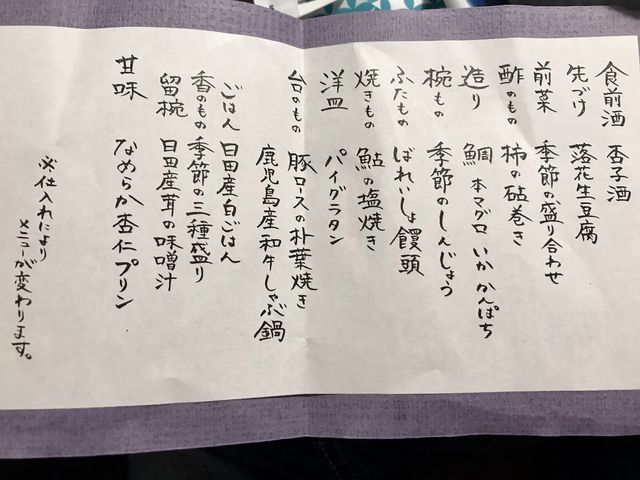 食前酒 杏子酒
先づけ 落花生豆腐
前菜 季節の盛り合わせ
酢のもの 柿の砧巻き
造り 鯛 本マグロ いか かんぱち
椀もの 季節のしんじょう
ふたもの ばれいしょ饅頭
焼きもの 鮎の塩焼き
洋皿 パイグラタン
台のもの 豚ロースの朴葉焼き
鹿児島産和牛しゃぶ鍋
ごはん 日田産白ごはん
香のもの 季節の三種盛り
留椀 日田産茸の味噌汁
甘味 なめらか杏仁プリン
※仕入れにより
メニューが変わります。